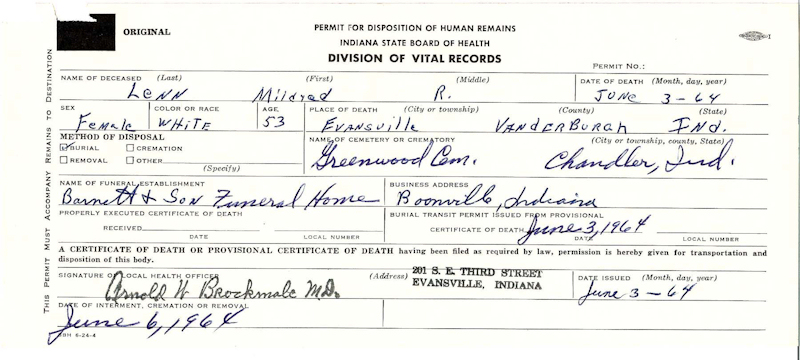 ORIGINAL
PERMIT FOR DISPOSITION OF HUMAN REMAINS
INDIANA STATE BOARD OF HEALTH
DIVISION OF VITAL RECORDS
PERMIT NO.:
NAME OF DECEASED (Last) (First) (Middle) DATE OF DEATH (Month, day, year)
Lenn Mildred R. June 3-64
SEX COLOR OR RACE AGE PLACE OF DEATH (City or township) (County) (State)
Female White 53 Evansville Vanderburgh Ind.
METHOD OF DISPOSAL NAME OF CEMETERY OR CREMATORY (City or township, county, State)
BURIAL CREMATION
REMOVAL OTHER
(Specify)
Greenwood Cem. Chandler, Ind.
NAME OF FUNERAL ESTABLISHMENT BUSINESS ADDRESS
Barnett & Son Funeral Home Boonville, Indiana
PROPERLY EXECUTED CERTIFICATE OF DEATH BURIAL TRANSIT PERMIT ISSUED FROM PROVISIONAL
RECEIVED CERTIFICATE OF DEATH June 3, 1964
DATE LOCAL NUMBER DATE LOCAL NUMBER
A CERTIFICATE OF DEATH OR PROVISIONAL CERTIFICATE OF DEATH having been filed as required by law, permission is hereby given for transportation and
disposition of this body.
SIGNATURE OF LOCAL HEALTH OFFICER (Address) 201 S. E. THIRD STREET DATE ISSUED (Month, day, year)
Arnold W Brockmole M.D. EVANSVILLE, INDIANA June 3-64
DATE OF INTERMENT, CREMATION OR REMOVAL
June 6, 1964
SBH 6-24-4
THIS PERMIT MUST ACCOMPANY REMAINS TO DESTINATION